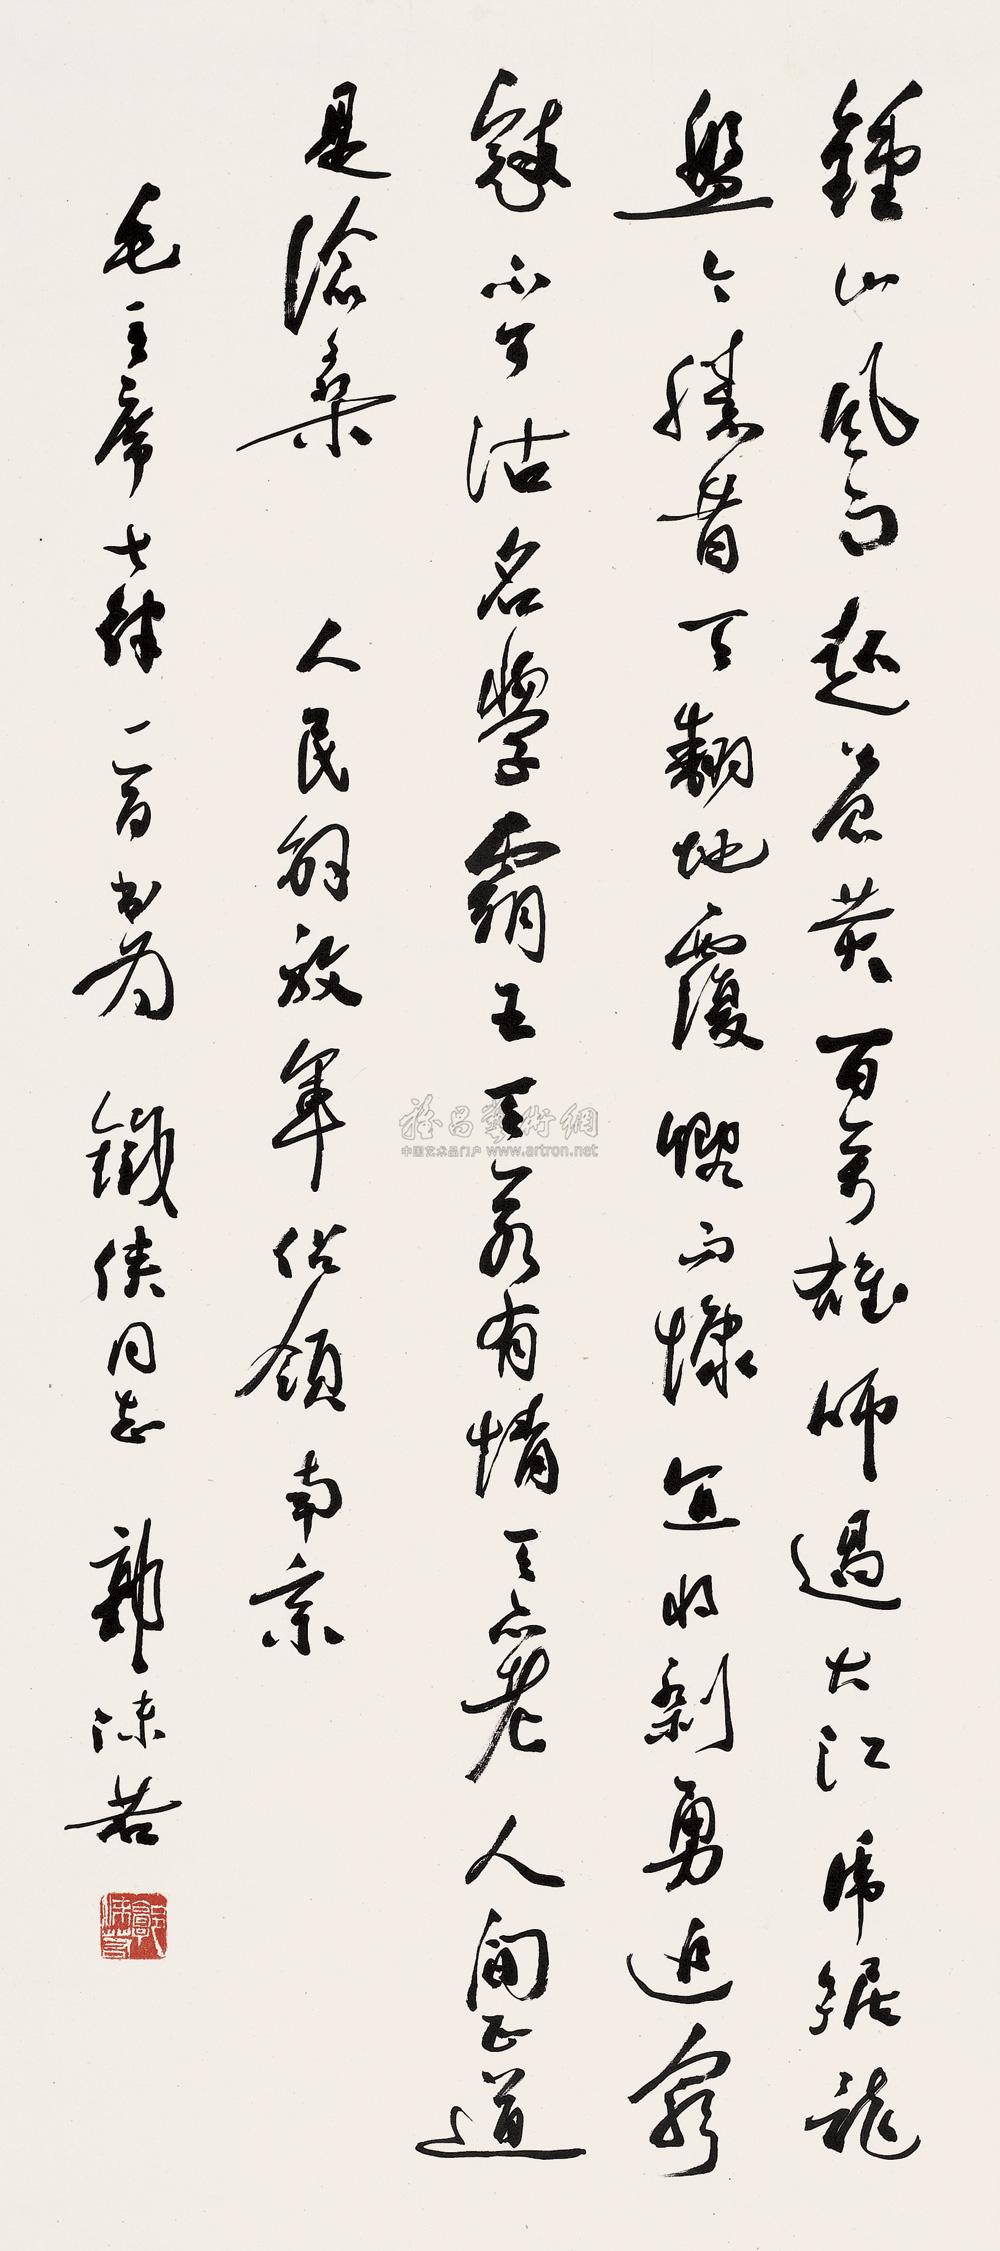 鍾山風雨起蒼黃百萬雄師過大江虎踞龍
盤今勝昔天翻地覆慨而慷宜將剩勇追窮
寇不可沽名學霸王天若有情天亦老人間正道
是滄桑 人民解放軍佔領南京
毛主席七律一首書為 鐵俠同志 郭沫若
郭沫若
雅昌藝術網
中国艺术品门户 www.artron.net